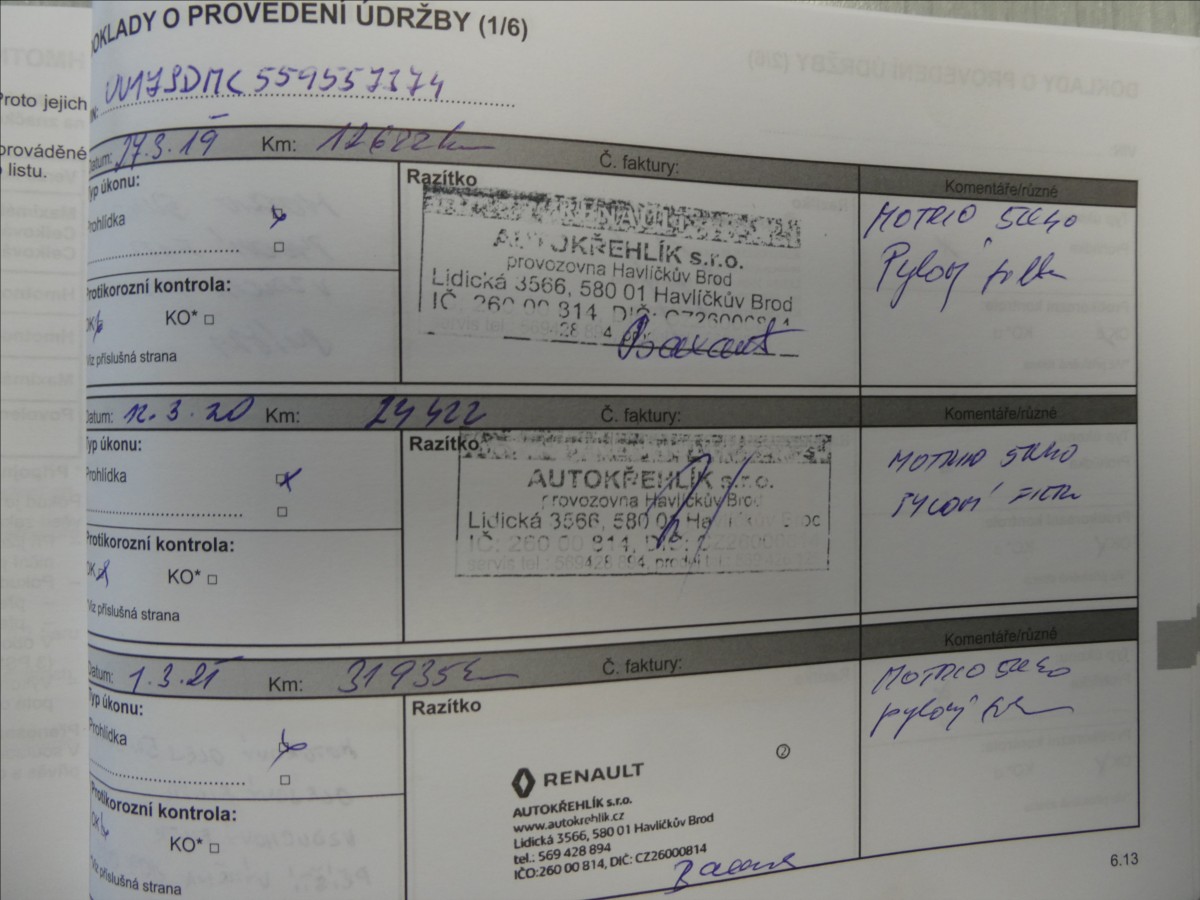 DOKLADY O PROVEDENÍ ÚDRŽBY (1/6)
Proto jejich
prováděné
listu.
Datum: 27.3.19 Km: 12622km Č. faktury:
Komentáře/různé
Typ úkonu:
Prohlídka
Razítko
AUTOKŘEHLÍK s.r.o.
provozovna Havlíčkův Brod
Lidická 3566, 580 01 Havlíčkův Brod
IČ: 260 00 814, DIČ: CZ26000814
MOTRIO 5W40
Pylový filtr
Protikorozní kontrola:
OK KO*
Viz příslušná strana
Datum: 12.3.20 Km: 24422 Č. faktury:
Komentáře/různé
Typ úkonu:
Prohlídka
Razítko
AUTOKŘEHLÍK s.r.o.
provozovna Havlíčkův Brod
Lidická 3566, 580 01
IČ: 260 00 814, DIČ: CZ26000814
servis tel.: 569428 894, prodej
MOTRIO 5W40
PYLOVÝ FILTR
Protikorozní kontrola:
OK KO*
Viz příslušná strana
Datum: 1.3.21 Km: 31935km Č. faktury:
Komentáře/různé
Typ úkonu:
Prohlídka
Razítko
2
RENAULT
AUTOKŘEHLÍK s.r.o.
www.autokrehlik.cz
Lidická 3566, 580 01 Havlíčkův Brod
tel.: 569 428 894
IČO:260 00 814, DIČ: CZ26000814
MOTRIO 5W40
pylový filtr
Protikorozní kontrola:
OK KO*
Viz příslušná strana
6.13